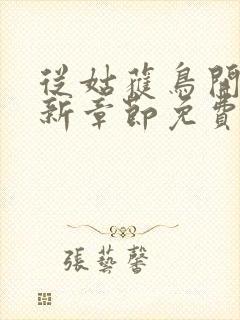 從姑蒦鳥開
新章節免費
張藝馨